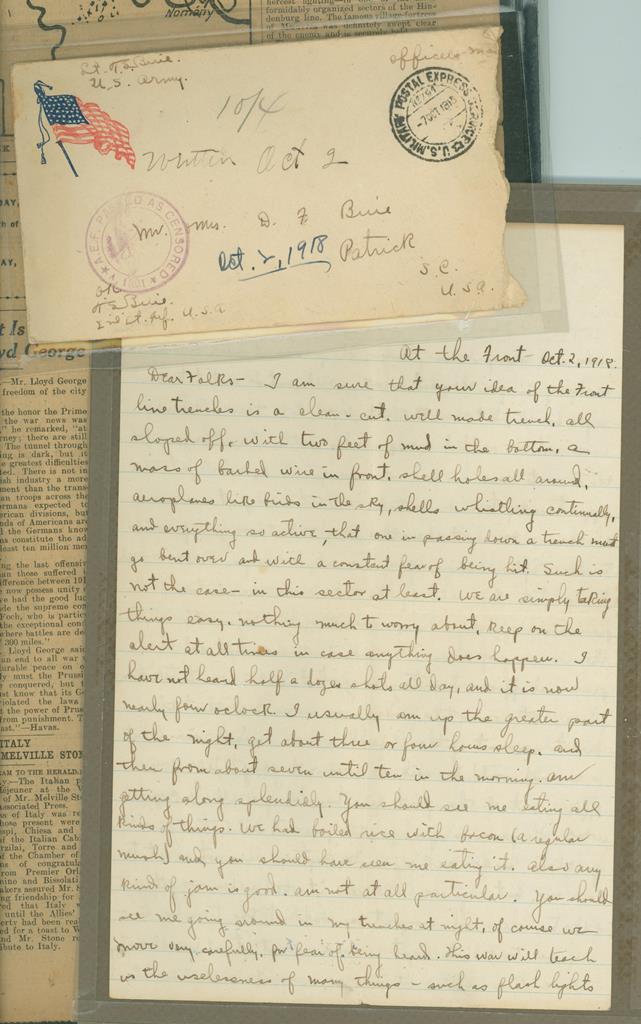 Nomeny
hercest fighting—in one of the
formidably organized sectors of the Hin-
denburg line. The famous village-fortress
was definitely swept clear
of the enemy and is securely held
Lt. T. S. Buie.
U. S. Army.
Officers Mail
10/4
U.S. MILITARY POSTAL EXPRESS SERVICE
7 OCT 1918
Written Oct 2
A.E.F. PASSED AS CENSORED
Mr. Mrs. D. F. Buie
Oct. 2, 1918
Patrick
S. C.
U. S. A.
OK
T S Buie.
2nd Lt. Inf. U. S. A
At the Front Oct. 2, 1918.
Dear Folks— I am sure that your idea of the Front
line trenches is a clean-cut, well made trench, all
sloped off, with two feet of mud in the bottom, a
mass of barbed wire in front, shell holes all around,
aeroplanes like birds in the sky, shells whistling continually,
and everything so active, that one in passing down a trench must
go bent over and with a constant fear of being hit. Such is
not the case— in this sector at least. We are simply taking
things easy, nothing much to worry about, keep on the
alert at all times in case anything does happen. I
have not heard half a dozen shots all day, and it is now
nearly four oclock. I usually am up the greater part
of the night, get about three or four hours sleep, and
then from about seven until ten in the morning. am
getting along splendidly. You should see me eating all
kinds of things. We had boiled rice with bacon (a regular
mush) and you should have seen me eating it. Also any
kind of jam is good. am not at all particular. You should
see me going around in my trenches at night, of course we
move very carefully, for fear of being heard. This war will teach
us the uselessness of many things – such as flash lights
t Is
yd George
—Mr. Lloyd George
freedom of the city
the honor the Prime
the war news was
" he remarked, "at
rney; there are still
The tunnel through
ng is dark, but it
e greatest difficulties
ted. There is not in
ish industry a more
ment than the trans-
an troops across the
ermans expected to
rican divisions, but
nds of Americans are
d the Germans know
ns constitute the ad
least ten million men
ng the last offensiv
an those suffered i
ifference between 191
e now possess unity o
ve had the good luc
de the supreme com
Foch, who is partic
the exceptional cond
where battles are de
f 300 miles."
Lloyd George said
an end to all war t
urable peace on o
ly must the Pruss
conquered, but t
st know that its G
iolated the laws
t the power of Prus
from punishment. T
ast."—Havas.
ITALY
MELVILLE STON
AM TO THE HERALD.
y.—The Italian p
éjeuner at the V
of Mr. Melville Sto
ssociated Press.
ss of Italy was re
hose present were
spi, Chiesa and
f the Italian Cabi
rzilai, Torre and
f the Chamber of
ns of congratula
rom Premier Orl
nino and Bissolati
akers assured Mr. S
ng friendship for
red that Italy w
until the Allies'
erty had been rea
ed for a toast to W
nd Mr. Stone r
ibute to Italy.